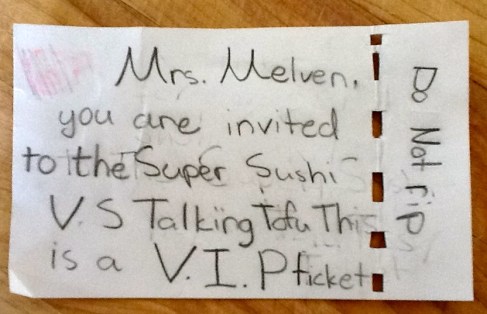 Mrs. Melven,
you are invited
to the Super Sushi
V.S Talking Tofu This
is a V.I.P ticket
Do Not rip